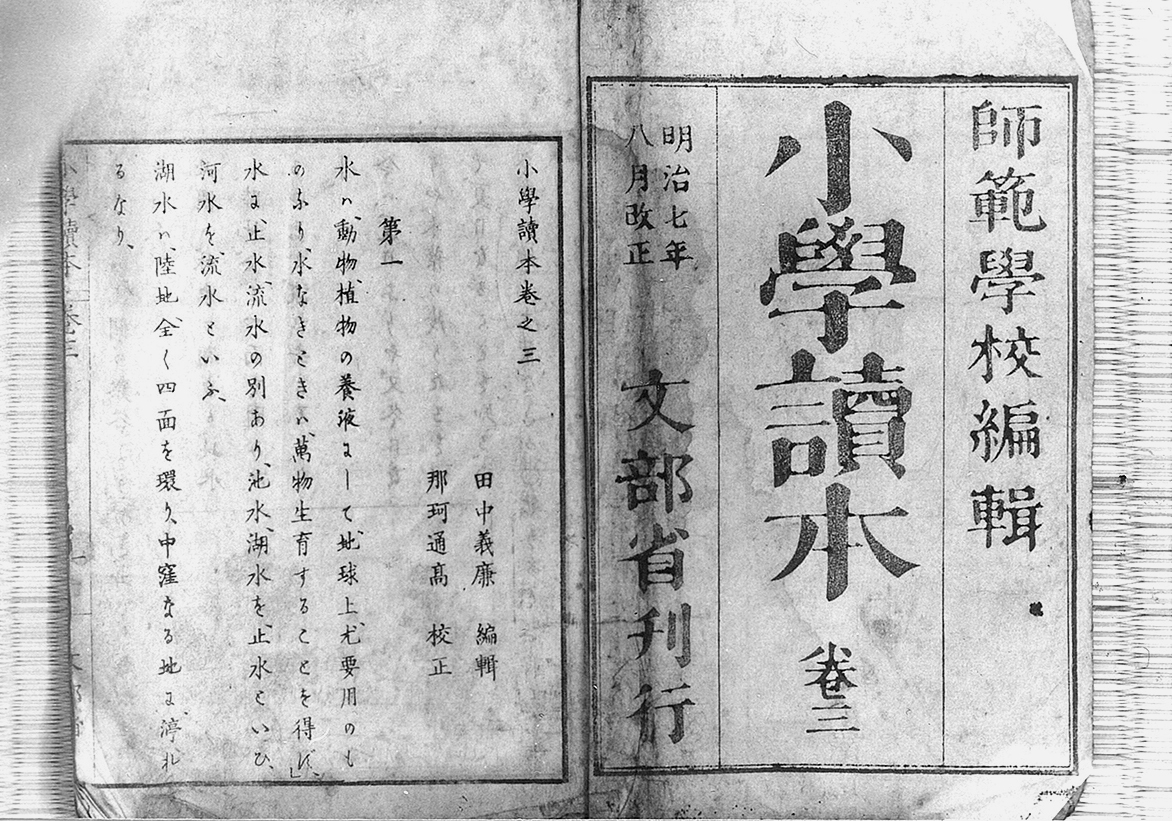 師範學校編輯
小學讀本 卷三
明治七年
八月改正
文部省刊行
小學讀本卷之三
田中義廉 編輯
那珂通髙 校正
第一
水ハ、動物、植物の養液にして、地球上、尤要用のも
のふり、水なきときハ、萬物生育することを得ず、」
水に、止水、流水の別あり、池水、湖水を、止水といひ、
河水を、流水といふ、
湖水ハ、陸地、全く四面を環り、中窪なる地に、渟れ
るなり、
小學讀本 卷三